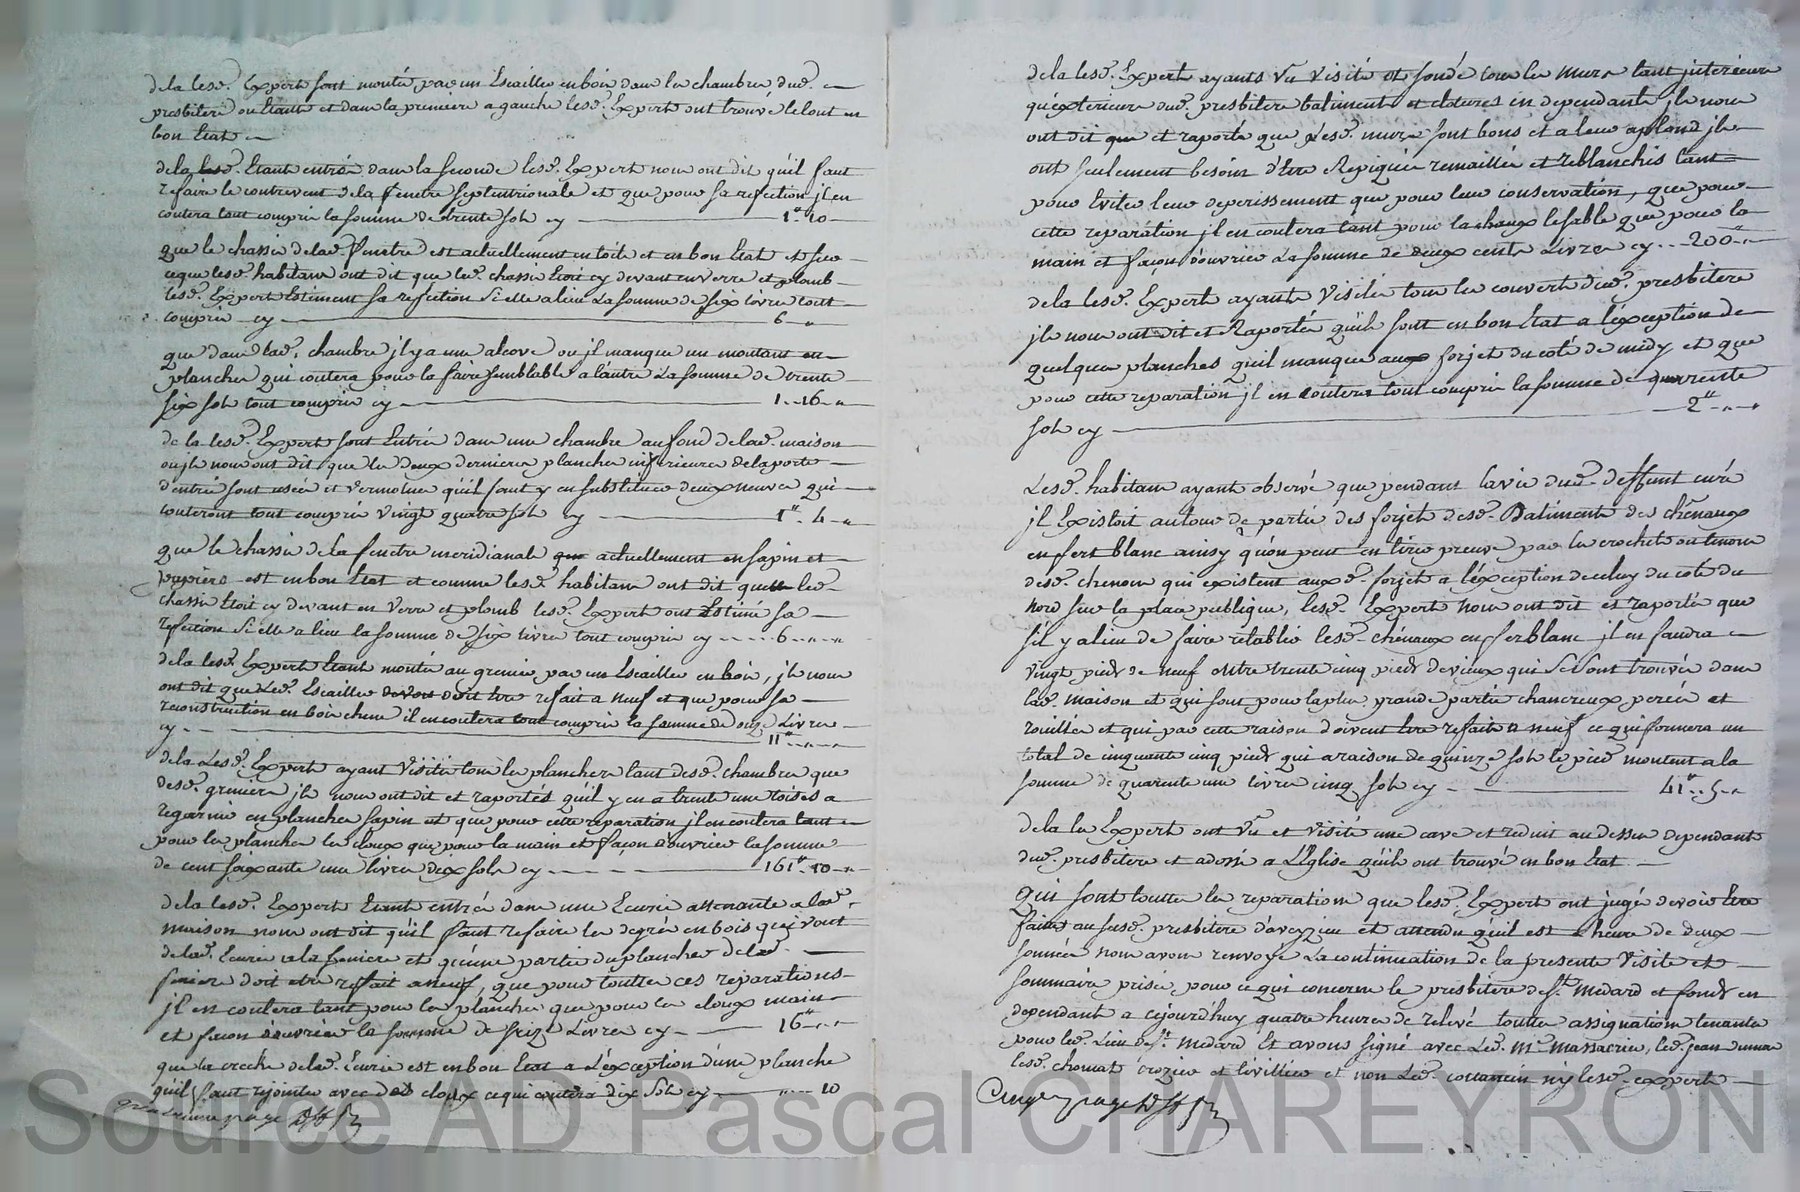 de la lesd. Experts sont montés par un Escaillier en bois dans les chambres dud.
presbitere ou Etants et dans la premiere a gauche lesd. Experts ont trouvé le tout en
bon Etat
de la lesd. Etant entrés dans la seconde lesd. Experts nous ont dit qu'il faut
refaire le contrevent de la fenetre septentrionale et que pour sa refection jl en
coutera tout compris la somme de trente sols cy 1# 10
que le chassi de lad. fenetre est actuellement en toile et en bon Etat et sur
ceque lesd. habitans ont dit que led. chassi Etoit cy devant en verre et plomb
lesd. Experts Estiment sa refection si elle a lieu La somme de six livres tout
compris cy 6 "
que dans lad. chambre jl y a une alcove ou jl manque un montant en
planches qui coutera pour la faire semblable a l'autre La somme de trente
six sols tout compris cy 1 .. 16 "
de la lesd. Experts sont Entrés dans une chambre au fond de lad. maison
ou jls nous ont dit que les deux dernieres planches inferieures de la porte
d'entrée sont usées et vermolues qu'il faut y en substituer deux neuves qui
couteront tout compris vingt quatre sols cy 1# 4 "
que le chassi de la fenetre meridianale que actuellement en sapin et
papiers est en bon Etat et comme lesd. habitans ont dit que led.
chassi Etoit cy devant en verre et plomb lesd. Experts ont Estimé sa
refection si elle a lieu la somme de six livres tout compris cy 6 "
de la lesd. Experts Etant montés au grenier par un Escaillier en bois, jls nous
ont dit que Led. Escaillier devois doit etre refait a neuf et que pour sa
reconstruction en bois chene il en coutera tout compris la somme de onze Livres
cy 11#
de la Lesd. Experts ayant Visité tous les planchers tant desd. chambres que
desd. greniers jls nous ont dit et raportés qu'il y en a trente une toises a
regarnir en planches sapin et que pour cette reparation jl en coutera tant
pour les planches les cloux que pour la main et façon d'ouvrier la somme
de cent soixante une livres dix sols cy 161# 10 "
de la lesd. Experts Etant entrés dans une Ecurie attenante a lad.
maison nous ont dit qu'il faut refaire les degrés en bois qui vont
de lad. Ecurie a la feniere et qu'une partie du plancher de lad.
feniere doit etre refait a neuf, que pour toutes ces reparations
jl en coutera tant pour les planches que pour les cloux main
et façon d'ouvrier la somme de seize Livres cy 16#
que la creche de lad. Ecurie est en bon Etat a l'exception d'une planche
qu'il faut rejointer avec des cloux ce qui coutera dix sols cy " 10
page
de la lesd. Experts ayants Vu visité et sondé tous les murs tant jnterieurs
qu'exterieurs dud. presbitere batiments et clotures en dependants jls nous
ont dit que et raporté que Lesd. murs sont bons et a leur aplond jls
ont seulement besoin d'etre Repiqués remaillés et reblanchis tant
pour Eviter leur deperissement que pour leur conservation, que pour
cette reparation jl en coutera tant pour la chaux le sable que pour la
main et façon d'ouvrier La somme de deux cents Livres cy 200 "
de la lesd. Experts ayants Visités tous les couverts dud. presbitere
jls nous ont dit et Raportés qu'ils sont en bon Etat a l'exception de
quelques planches qu'il manque aux forjet du coté de midy et que
pour cette reparation jl en coutera tout compris la somme de quarente
sols cy 2# "
Lesd. habitans ayant observé que pendant la vie dud. deffunt curé
jl Existoit autour de partie des forjets desd. Batiments des chénaux
en fert blanc ainsy qu'on peut en tirer preuve par les crochets ou tenons
desd. chenaux qui existent auxd. forjets a l'exception de celuy du coté du
Nord sur la place publique, lesd. Experts Nous ont dit et raportés que
s'il y a lieu de faire rétablir lesd. chénaux en fer blanc jl en faudra
vingt pieds de neuf outre trente cinq pieds de vieux qui se sont trouvés dans
lad. maison et qui sont pour la plus grande partie chancreux, percés et
rouillés et qui par cette raison doivent etre refait a neuf ce qui formera un
total de cinquente cinq pieds qui a raison de quinze sols le pied montent a la
somme de quarente une livres cinq sols cy 41# 5 "
de la les Experts ont Vu et visité une cave et reduit au dessus dependants
dud. presbitere et adossé a L'Eglise qu'ils ont trouvé en bon Etat
qui sont toutes les reparations que lesd. Experts ont jugés devoir etre
faittes au susd. presbitere d'aveyzieu et attendu qu'il est heure de deux
sonnées nous avons renvoyé La continuation de la presente Visite et
sommaire prisée pour ce qui concerne le presbitere de St. medard et fonds en
dependant a cejourd'huy quatre heures de relevé toutte assignation tenante
pour led. Lieu de St. medard Et avons signé avec Led. Me massacrier, led. jean dumas
lesd. chomat crozier et Révillier et non Led. cottancin ny lesd. experts
page
Source AD Pascal CHAREYRON